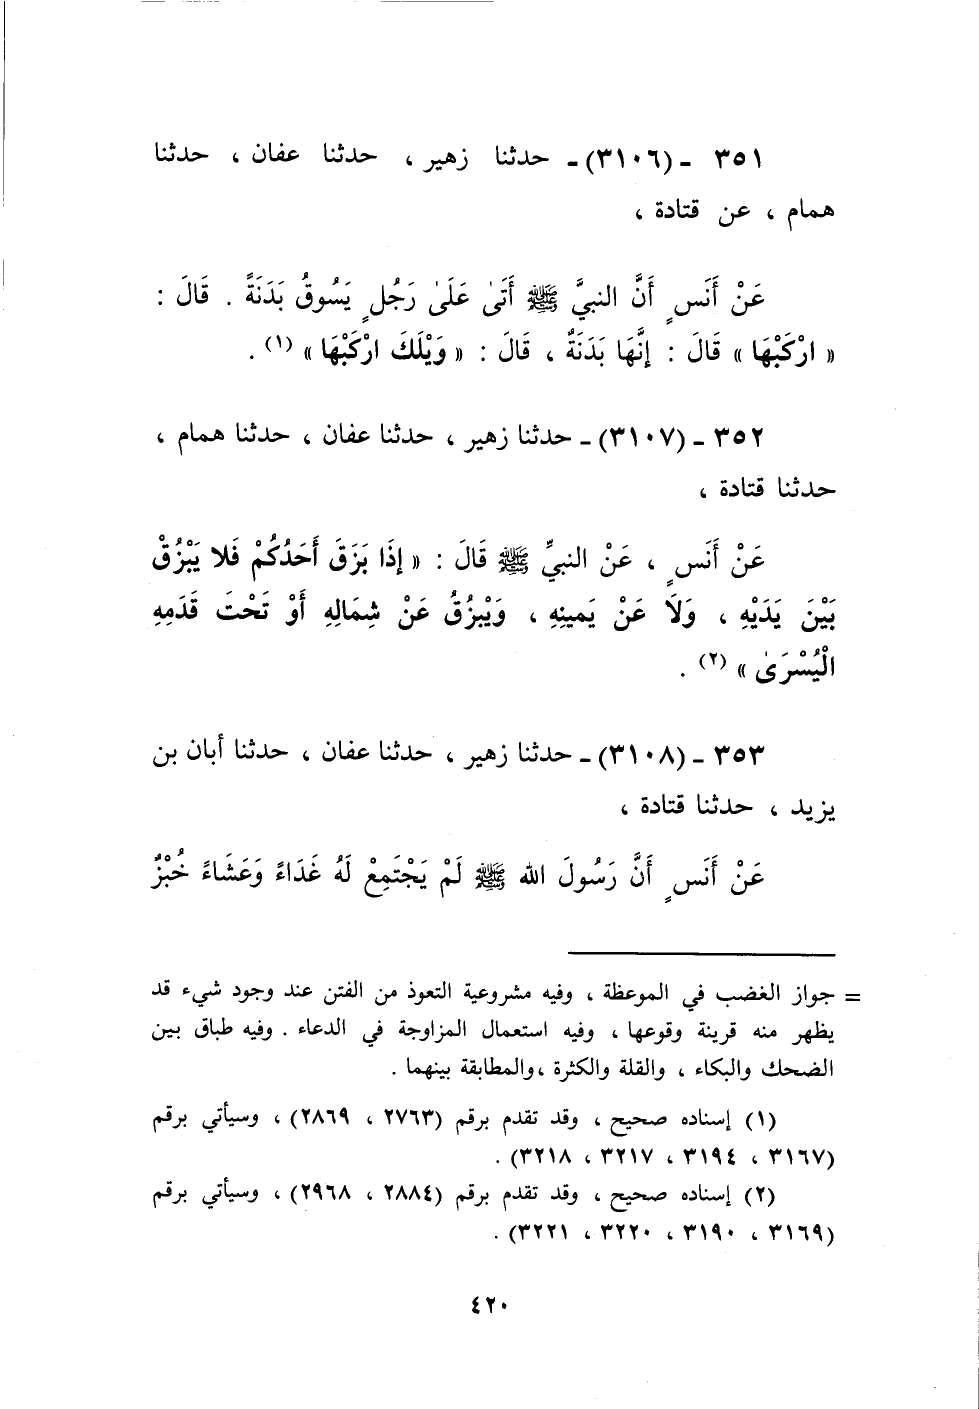 ٣٥١ - (٣١٠٦) - حدثنا زهير ، حدثنا عفان ، حدثنا
همام ، عن قتادة ،
عَنْ أَنَسٍ أَنَّ النبيَّ ﷺ أَتَىٰ عَلَىٰ رَجُلٍ يَسُوقُ بَدَنَةً . قَالَ :
« ارْكَبْهَا » قَالَ : إِنَّهَا بَدَنَةٌ ، قَالَ : « وَيْلَكَ ارْكَبْهَا » (١) .
٣٥٢ - (٣١٠٧) - حدثنا زهير ، حدثنا عفان ، حدثنا همام ،
حدثنا قتادة ،
عَنْ أَنَسٍ ، عَنْ النبيِّ ﷺ قَالَ : « إِذَا بَزَقَ أَحَدُكُمْ فَلا يَبْزُقْ
بَيْنَ يَدَيْهِ ، وَلَا عَنْ يَمينِهِ ، وَيْبزُقُ عَنْ شِمَالِهِ أَوْ تَحْتَ قَدَمِهِ
الْيُسْرَىٰ » (٢) .
٣٥٣ - (٣١٠٨) - حدثنا زهير ، حدثنا عفان ، حدثنا أبان بن
يزيد ، حدثنا قتادة ،
عَنْ أَنَسٍ أَنَّ رَسُولَ الله ﷺ لَمْ يَجْتَمِعْ لَهُ غَدَاءً وَعَشَاءً خُبْزٌ
= جواز الغضب في الموعظة ، وفيه مشروعية التعوذ من الفتن عند وجود شيء قد
يظهر منه قرينة وقوعها ، وفيه استعمال المزاوجة في الدعاء . وفيه طباق بين
الضحك والبكاء ، والقلة والكثرة ،والمطابقة بينهما .
(١) إسناده صحيح ، وقد تقدم برقم (٢٧٦٣ ، ٢٨٦٩) ، وسيأتي برقم
(٣١٦٧ ، ٣١٩٤ ، ٣٢١٧ ، ٣٢١٨) .
(٢) إسناده صحيح ، وقد تقدم برقم (٢٨٨٤ ، ٢٩٦٨) ، وسيأتي برقم
(٣١٦٩ ، ٣١٩٠ ، ٣٢٢٠ ، ٣٢٢١) .
٤٢٠